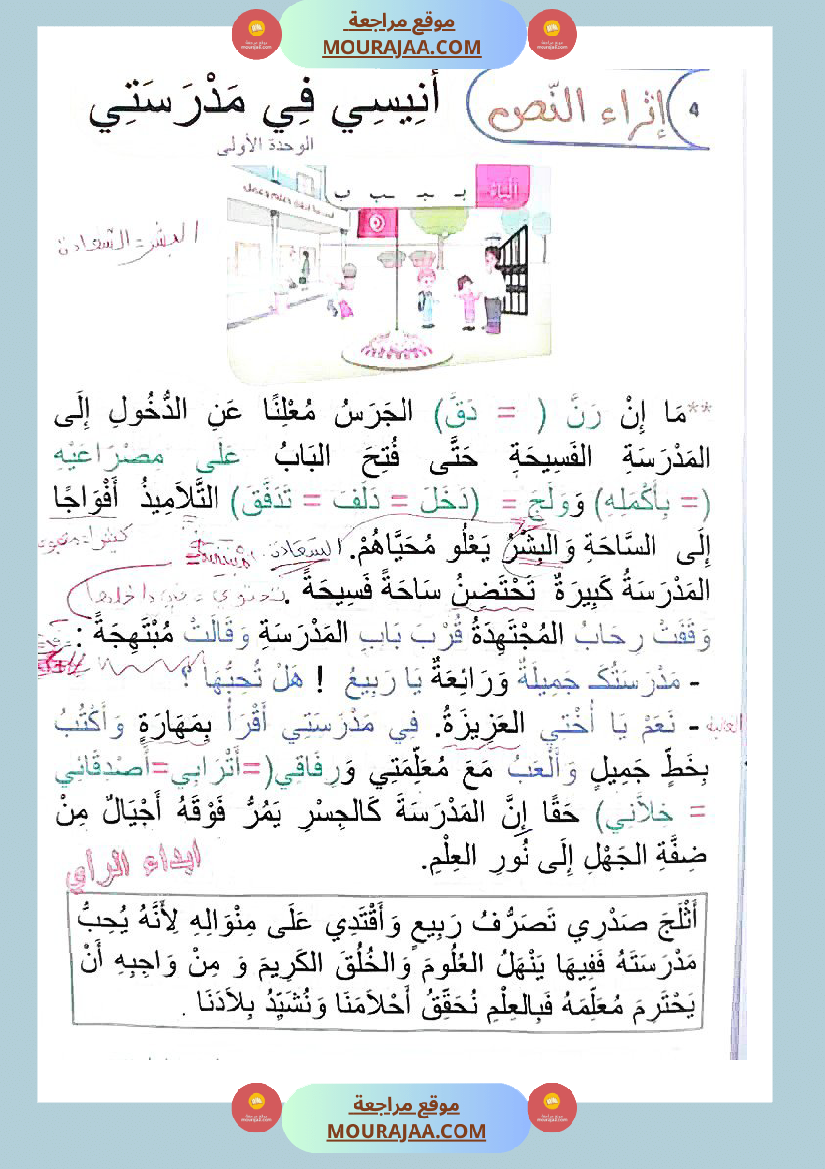 موقع مراجعة
MOURAJAA.COM
4 إثراء النّص
أَنِيسِي فِي مَدْرَسَتِي
الوحدة الأولى
البَاءُ بـ ـبـ ـب ب
البشر = السّعادة
**مَا إِنْ رَنَّ ( = دَقَّ) الجَرَسُ مُعْلِنًا عَنِ الدُّخُولِ إِلَى
المَدْرَسَةِ الفَسِيحَةِ حَتَّى فُتِحَ البَابُ عَلَى مِصْرَاعَيْهِ
(= بِأَكْمَلِهِ) وَوَلَجَ = (دَخَلَ = دَلَفَ = تَدَفَّقَ) التَّلَامِيذُ أَفْوَاجًا
إِلَى السَّاحَةِ وَالبِشْرُ يَعْلُو مُحَيَّاهُمْ. السعادة
المَدْرَسَةُ كَبِيرَةٌ تَحْتَضِنُ سَاحَةً فَسِيحَةً . تحتوي في داخلها
وَقَفَتْ رِحَابُ المُجْتَهِدَةُ قُرْبَ بَابِ المَدْرَسَةِ وَقَالَتْ مُبْتَهِجَةً :
- مَدْرَسَتُكَ جَمِيلَةٌ وَرَائِعَةٌ يَا رَبِيعُ ! هَلْ تُحِبُّهَا ؟
- نَعَمْ يَا أُخْتِي العَزِيزَةُ. فِي مَدْرَسَتِي أَقْرَأُ بِمَهَارَةٍ وَأَكْتُبُ
بِخَطٍّ جَمِيلٍ وَأَلْعَبُ مَعَ مُعَلِّمَتِي وَرِفَاقِي(=أَتْرَابِي=أَصْدِقَائِي
= خِلاَّنِي) حَقًا إِنَّ المَدْرَسَةَ كَالجِسْرِ يَمُرُّ فَوْقَهُ أَجْيَالٌ مِنْ
ضِفَّةِ الجَهْلِ إِلَى نُورِ العِلْمِ.
ابداء الرأي
أَثْلَجَ صَدْرِي تَصَرُّفُ رَبِيعٍ وَأَقْتَدِي عَلَى مِنْوَالِهِ لِأَنَّهُ يُحِبُّ
مَدْرَسَتَهُ فَفِيهَا يَنْهَلُ العُلُومَ وَالخُلُقَ الكَرِيمَ وَ مِنْ وَاجِبِهِ أَنْ
يَحْتَرِمَ مُعَلِّمَهُ فَبِالعِلْمِ نُحَقِّقُ أَحْلَامَنَا وَنُشَيِّدُ بِلاَدَنَا .
موقع مراجعة
MOURAJAA.COM